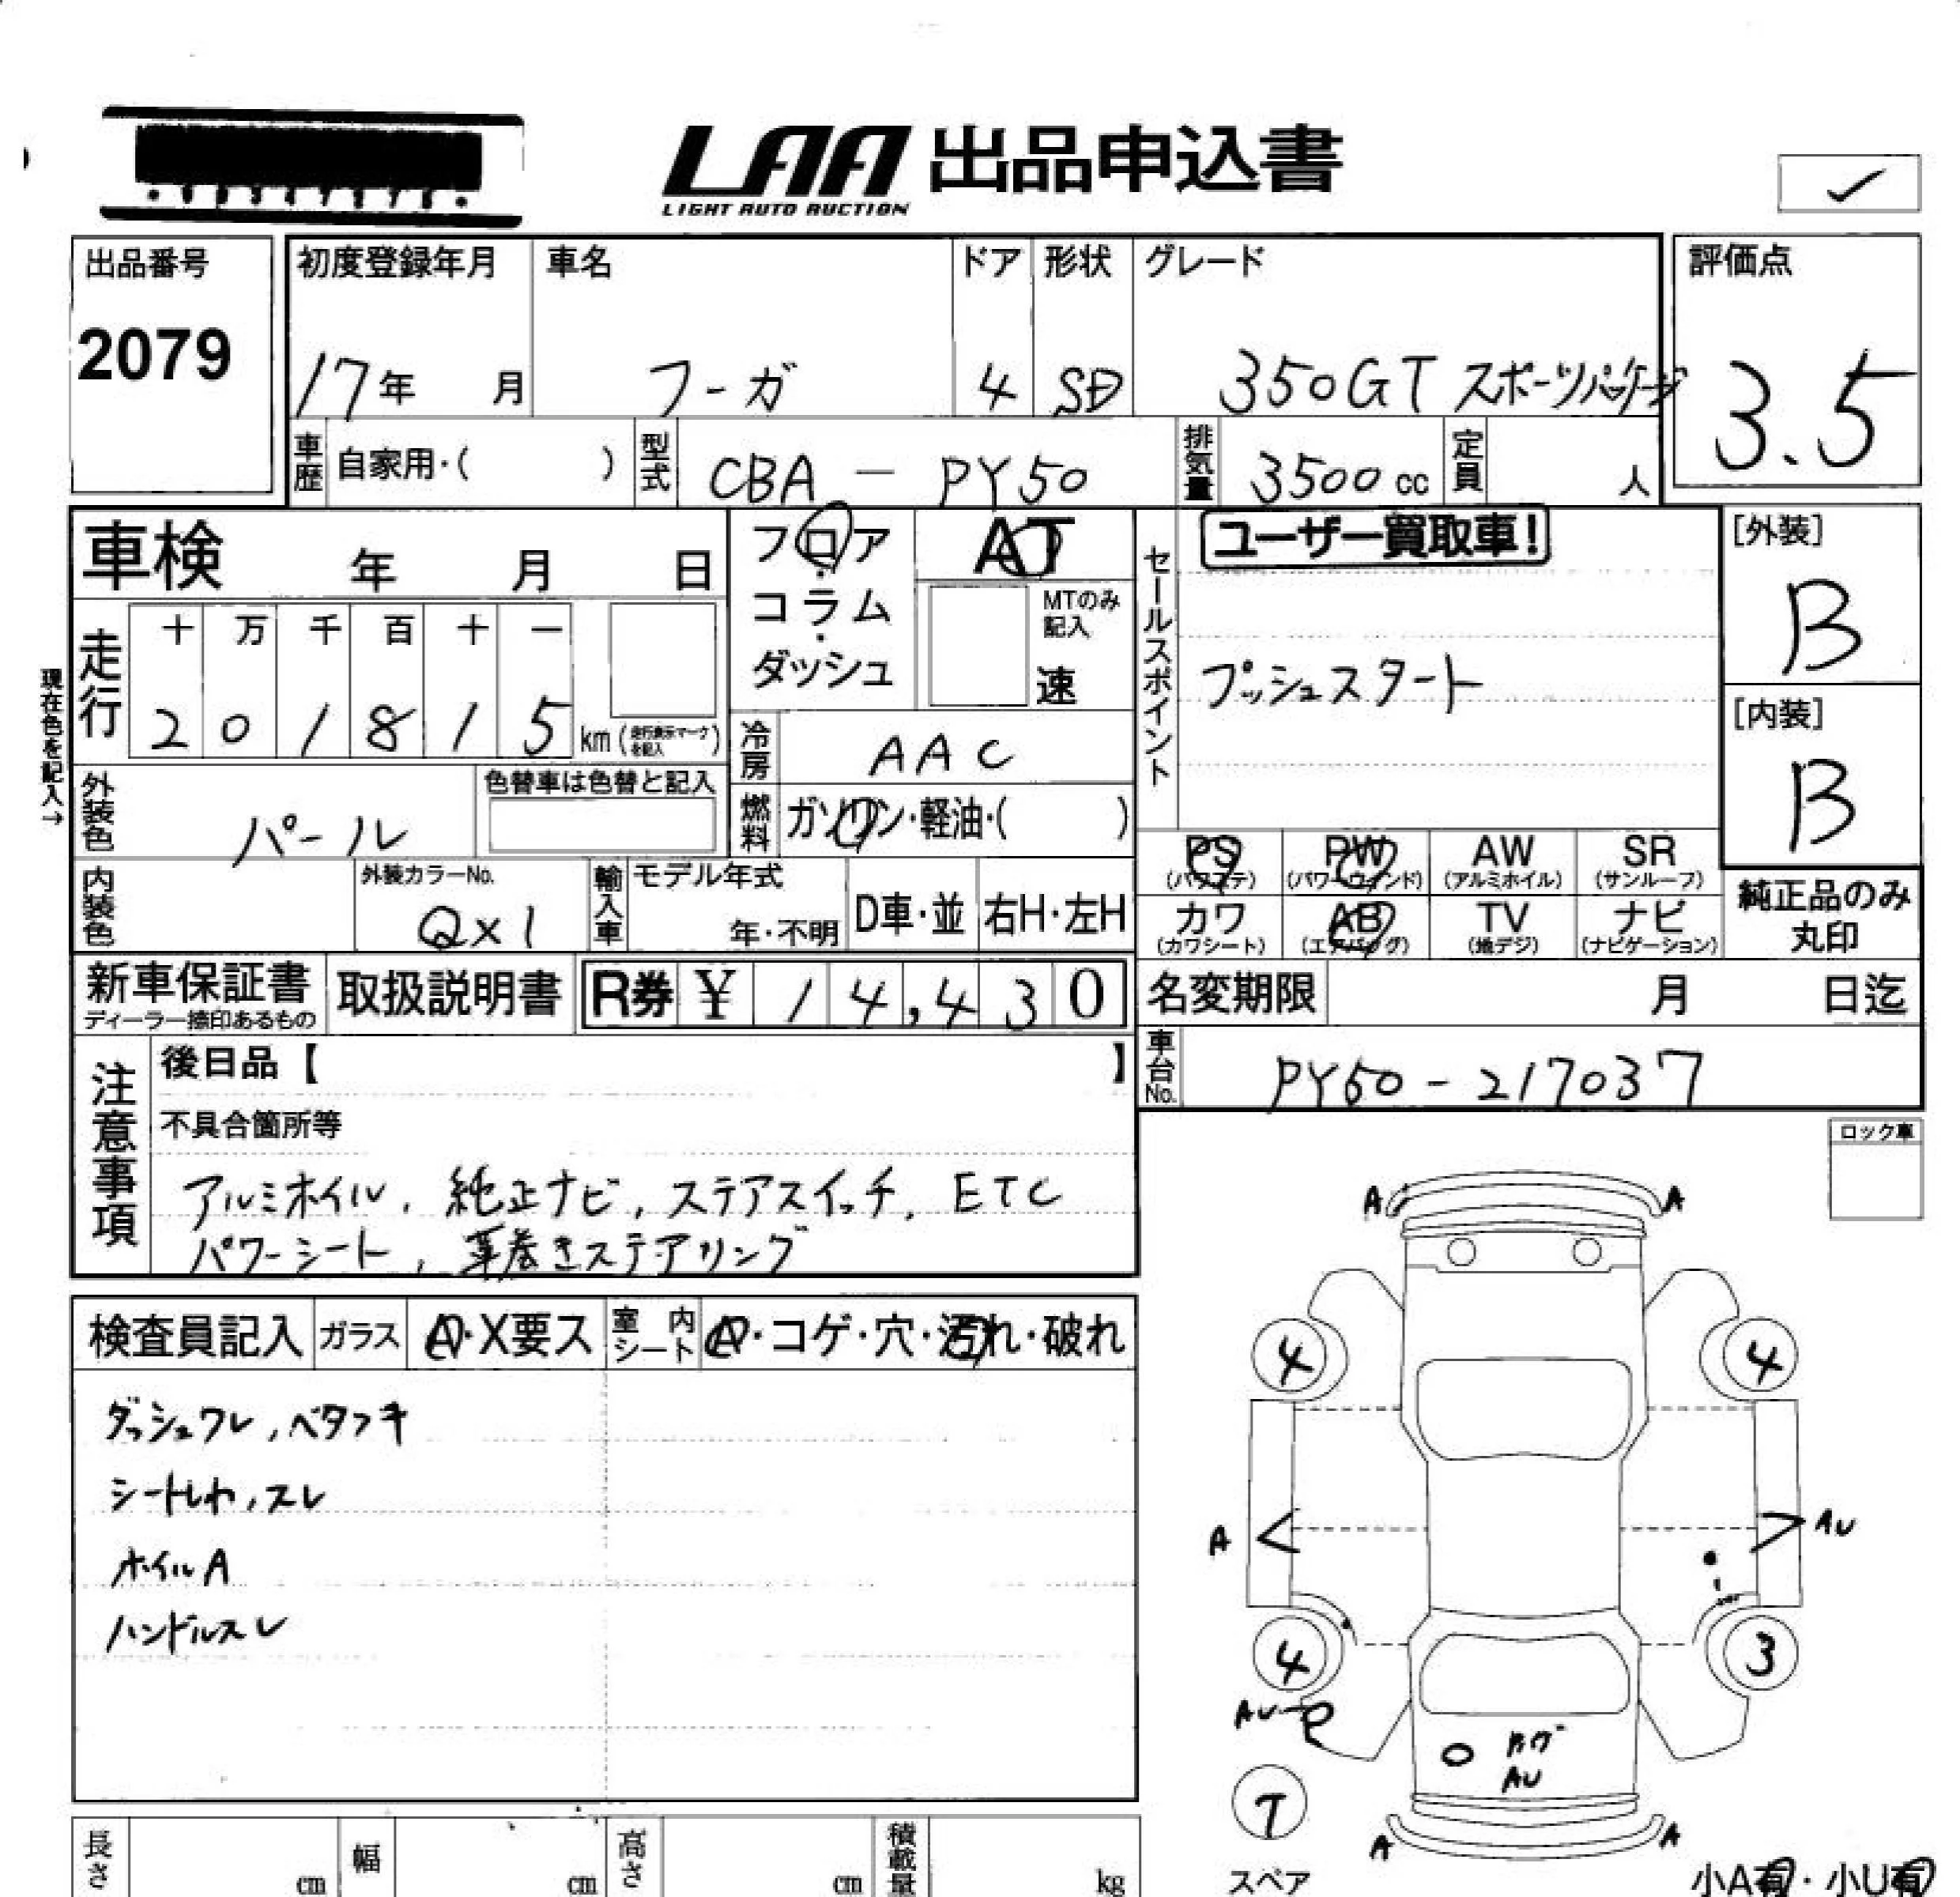 LAA 出品申込書
LIGHT AUTO AUCTION
✓
出品番号
2079
初度登録年月
17年 月
車名
フーガ
ドア
4
形状
SD
グレード
350GT スポーツパッケージ
評価点
3.5
車歴 自家用・( )
型式 CBA - PY50
排気量 3500cc
定員 人
車検 年 月 日
フロア・コラム・ダッシュ
AT
MTのみ記入
速
セールスポイント
ユーザー買取車!
プッシュスタート
[外装]
B
[内装]
B
現在色を記入→
走行
十 万 千 百 十 一
2 0 1 8 1 5 km (走行表示マークを記入)
冷房 AAC
燃料 ガソリン・軽油・( )
外装色 パール
色替車は色替と記入
内装色
外装カラーNo.
QX1
輸入車
モデル年式
年・不明
D車・並
右H・左H
PS (パワステ)
PW (パワーウィンド)
AW (アルミホイル)
SR (サンルーフ)
カワ (カワシート)
AB (エアバッグ)
TV (地デジ)
ナビ (ナビゲーション)
純正品のみ
丸印
新車保証書
ディーラー捺印あるもの
取扱説明書
R券 ¥ 14,430
名変期限 月 日迄
車台No. PY50-217037
注意事項
後日品【 】
不具合箇所等
アルミホイル, 純正ナビ, ステアスイッチ, ETC
パワーシート, 革巻きステアリング
ロック車
検査員記入
ガラス A・X要ス
室内シート A・コゲ・穴・汚れ・破れ
ダッシュワレ, ベタツキ
シートしわ, スレ
ホイルA
ハンドルスレ
A A
4 4
A AU
4 3
AU
AU
T
スペア
A A
小A有・小U有
長さ cm
幅 cm
高さ cm
積載量 kg